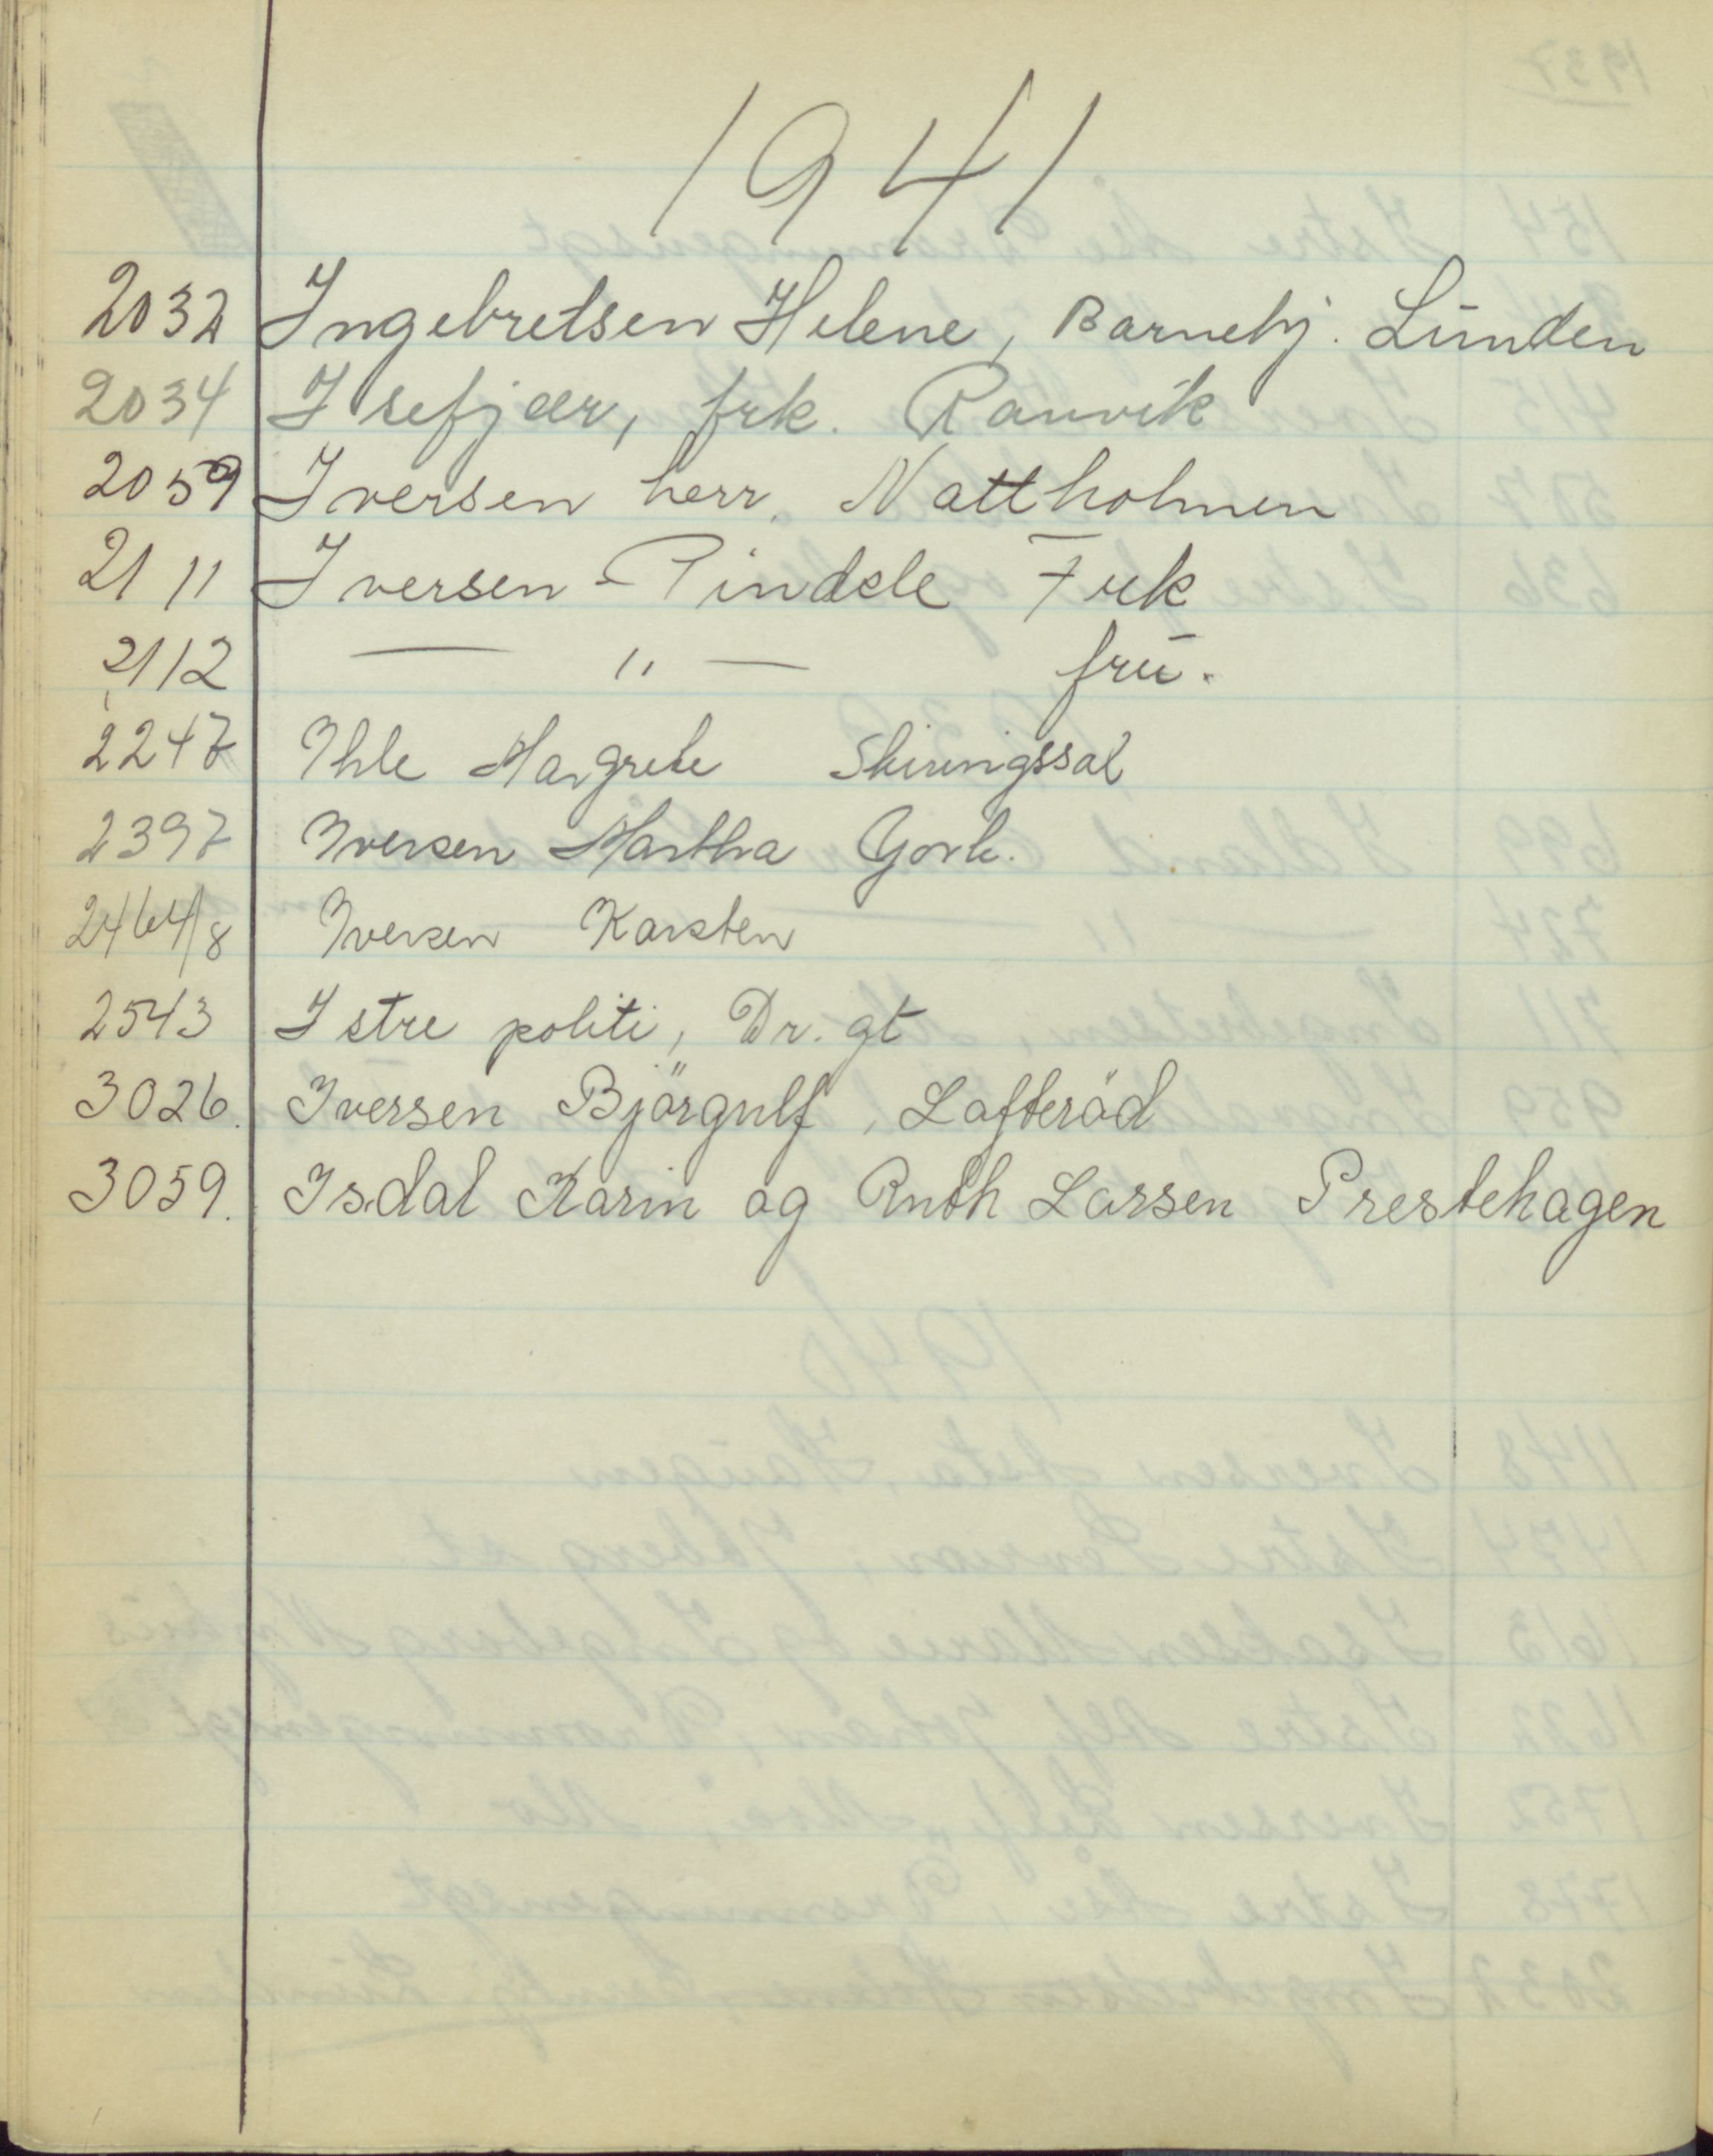 1941
2032 Ingebretsen Helene, Barnehj. Lunden
2034 Isefjær, frk. Ranvik
2059 Iversen herr. Nattholmen
2111 Iversen - Pindsle Frk
2112 — " — frū.
2247 Ihle Margrete Skiringssal
2397 Iversen Martha
2464/8 Iversen Karsten
2543 Istre politi, Dr. gt
3026. Iversen Björgulf, Lofteröd
3059. Isdal Karin og Ruth Larsen Prestehagen